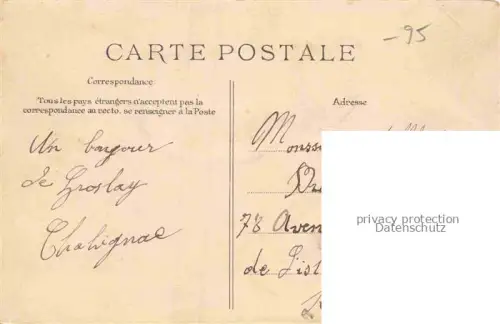 -95
CARTE POSTALE
Correspondance
Tous les pays étrangers n'acceptent pas la
correspondance au recto. se renseigner à la Poste
Adresse
Un bonjour
de Groslay
Chatignac
78 Aven
de List
privacy protection
Datenschutz